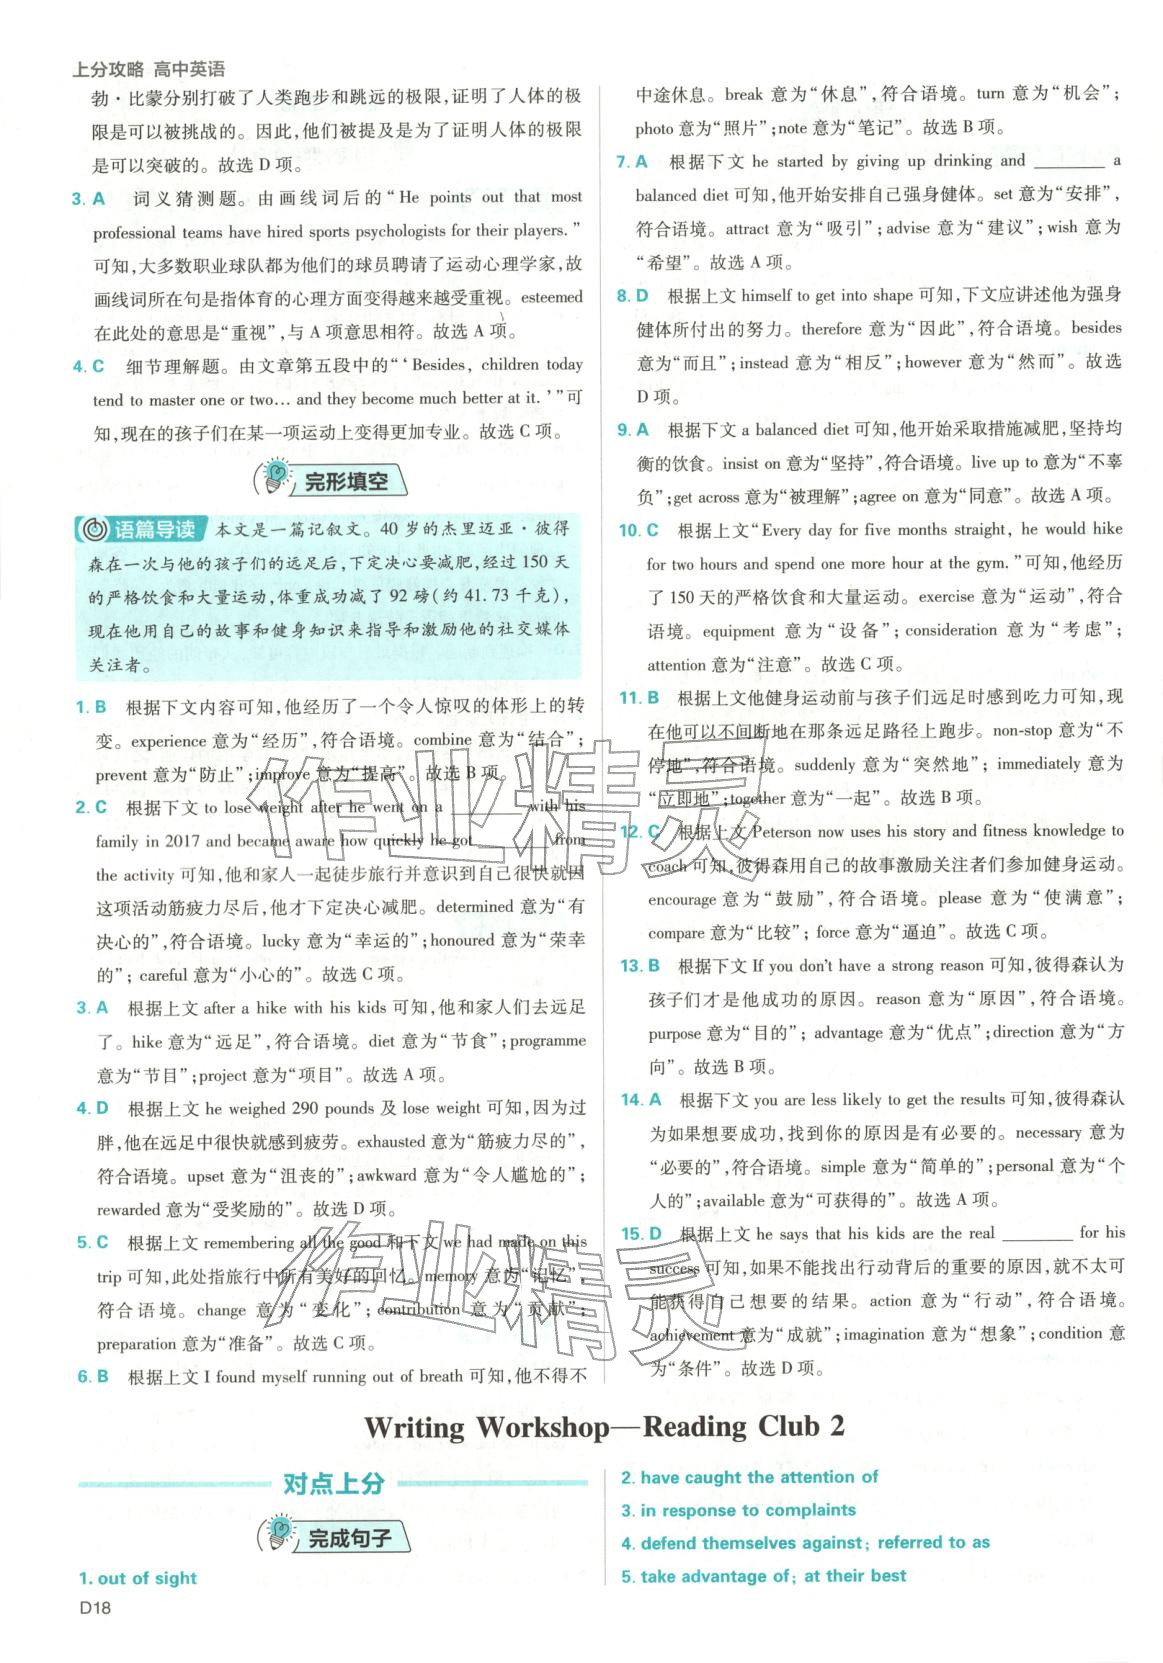 上分攻略 高中英语
勃·比蒙分别打破了人类跑步和跳远的极限,证明了人体的极
限是可以被挑战的。因此,他们被提及是为了证明人体的极限
是可以突破的。故选 D 项。
3. A 词义猜测题。由画线词后的“He points out that most
professional teams have hired sports psychologists for their players.”
可知,大多数职业球队都为他们的球员聘请了运动心理学家,故
画线词所在句是指体育的心理方面变得越来越受重视。esteemed
在此处的意思是“重视”,与 A 项意思相符。故选 A 项。
4. C 细节理解题。由文章第五段中的“‘Besides, children today
tend to master one or two… and they become much better at it.’”可
知,现在的孩子们在某一项运动上变得更加专业。故选 C 项。
完形填空
语篇导读 本文是一篇记叙文。40 岁的杰里迈亚·彼得
森在一次与他的孩子们的远足后,下定决心要减肥,经过 150 天
的严格饮食和大量运动,体重成功减了 92 磅(约 41.73 千克),
现在他用自己的故事和健身知识来指导和激励他的社交媒体
关注者。
1. B 根据下文内容可知,他经历了一个令人惊叹的体形上的转
变。experience 意为“经历”,符合语境。combine 意为“结合”;
prevent 意为“防止”;improve 意为“提高”。故选 B 项。
2. C 根据下文 to lose weight after he went on a ________ with his
family in 2017 and became aware how quickly he got ________ from
the activity 可知,他和家人一起徒步旅行并意识到自己很快就因
这项活动筋疲力尽后,他才下定决心减肥。determined 意为“有
决心的”,符合语境。lucky 意为“幸运的”;honoured 意为“荣幸
的”; careful 意为“小心的”。故选 C 项。
3. A 根据上文 after a hike with his kids 可知,他和家人们去远足
了。hike 意为“远足”,符合语境。diet 意为“节食”;programme
意为“节目”;project 意为“项目”。故选 A 项。
4. D 根据上文 he weighed 290 pounds 及 lose weight 可知,因为过
胖,他在远足中很快就感到疲劳。exhausted 意为“筋疲力尽的”,
符合语境。upset 意为“沮丧的”;awkward 意为“令人尴尬的”;
rewarded 意为“受奖励的”。故选 D 项。
5. C 根据上文 remembering all the good 和下文 we had made on this
trip 可知,此处指旅行中所有美好的回忆。memory 意为“记忆”,
符合语境。change 意为“变化”;contribution 意为“贡献”;
preparation 意为“准备”。故选 C 项。
6. B 根据上文 I found myself running out of breath 可知,他不得不
中途休息。break 意为“休息”,符合语境。turn 意为“机会”;
photo 意为“照片”;note 意为“笔记”。故选 B 项。
7. A 根据下文 he started by giving up drinking and ________ a
balanced diet 可知,他开始安排自己强身健体。set 意为“安排”,
符合语境。attract 意为“吸引”;advise 意为“建议”;wish 意为
“希望”。故选 A 项。
8. D 根据上文 himself to get into shape 可知,下文应讲述他为强身
健体所付出的努力。therefore 意为“因此”,符合语境。besides
意为“而且”;instead 意为“相反”;however 意为“然而”。故选
D 项。
9. A 根据下文 a balanced diet 可知,他开始采取措施减肥,坚持均
衡的饮食。insist on 意为“坚持”,符合语境。live up to 意为“不辜
负”;get across 意为“被理解”;agree on 意为“同意”。故选 A 项。
10. C 根据上文“Every day for five months straight, he would hike
for two hours and spend one more hour at the gym.”可知,他经历
了 150 天的严格饮食和大量运动。exercise 意为“运动”,符合
语境。equipment 意为“设备”;consideration 意为“考虑”;
attention 意为“注意”。故选 C 项。
11. B 根据上文他健身运动前与孩子们远足时感到吃力可知,现
在他可以不间断地在那条远足路径上跑步。non-stop 意为“不
停地”,符合语境。suddenly 意为“突然地”; immediately 意为
“立即地”;together 意为“一起”。故选 B 项。
12. C 根据上文 Peterson now uses his story and fitness knowledge to
coach 可知,彼得森用自己的故事激励关注者们参加健身运动。
encourage 意为“鼓励”,符合语境。please 意为“使满意”;
compare 意为“比较”; force 意为“逼迫”。故选 C 项。
13. B 根据下文 If you don't have a strong reason 可知,彼得森认为
孩子们才是他成功的原因。reason 意为“原因”,符合语境。
purpose 意为“目的”; advantage 意为“优点”;direction 意为“方
向”。故选 B 项。
14. A 根据下文 you are less likely to get the results 可知,彼得森认
为如果想要成功,找到你的原因是有必要的。necessary 意为
“必要的”,符合语境。simple 意为“简单的”;personal 意为“个
人的”;available 意为“可获得的”。故选 A 项。
15. D 根据上文 he says that his kids are the real ________ for his
success 可知,如果不能找出行动背后的重要的原因,就不太可
能获得自己想要的结果。action 意为“行动”,符合语境。
achievement 意为“成就”;imagination 意为“想象”;condition 意
意为“条件”。故选 D 项。
Writing Workshop—Reading Club 2
对点上分
完成句子
1. out of sight
2. have caught the attention of
3. in response to complaints
4. defend themselves against; referred to as
5. take advantage of; at their best
D18
作业精灵
作业精灵